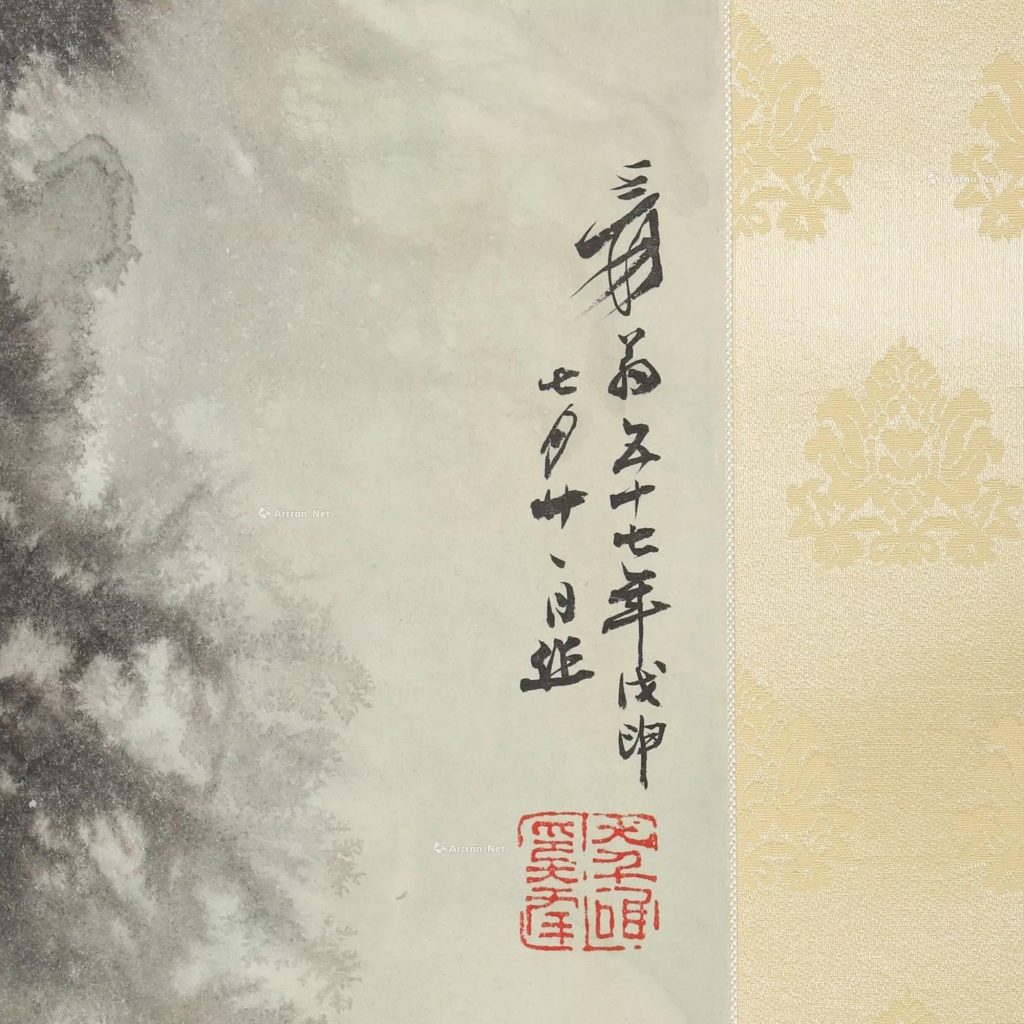 爰翁五十七年戊申
七月廿一日作
Artron.Net
Artron.Net
Artron.Net